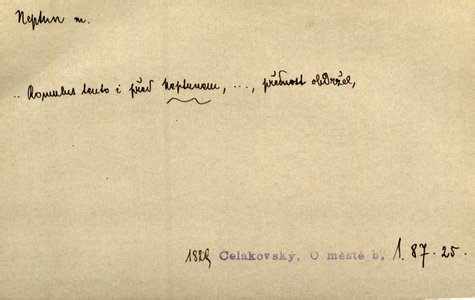 Neptun m.
.. Romulus tento i před Neptunem, ..., přednost obdržel,
1829 Čelakovský, O městě b. 1. 87. 25.